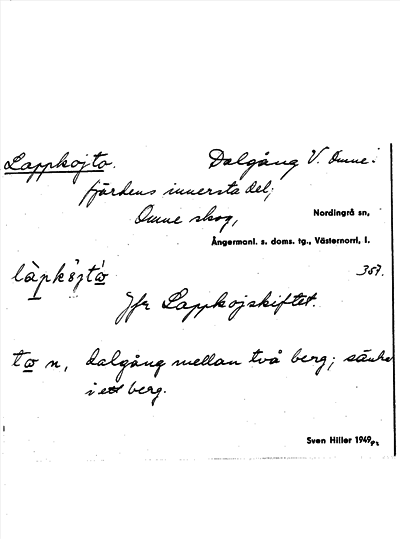 Lappkojto. Dalgång V. Omne-
fjärdens innersta del;
Omne skog, Nordingrå sn,
Ångermanl. s. doms. tg., Västernorrl. l.
357.
Jfr Lappkojskiftet.
n, dalgång mellan två berg; sänka
i ett berg.
Sven Hiller 1949